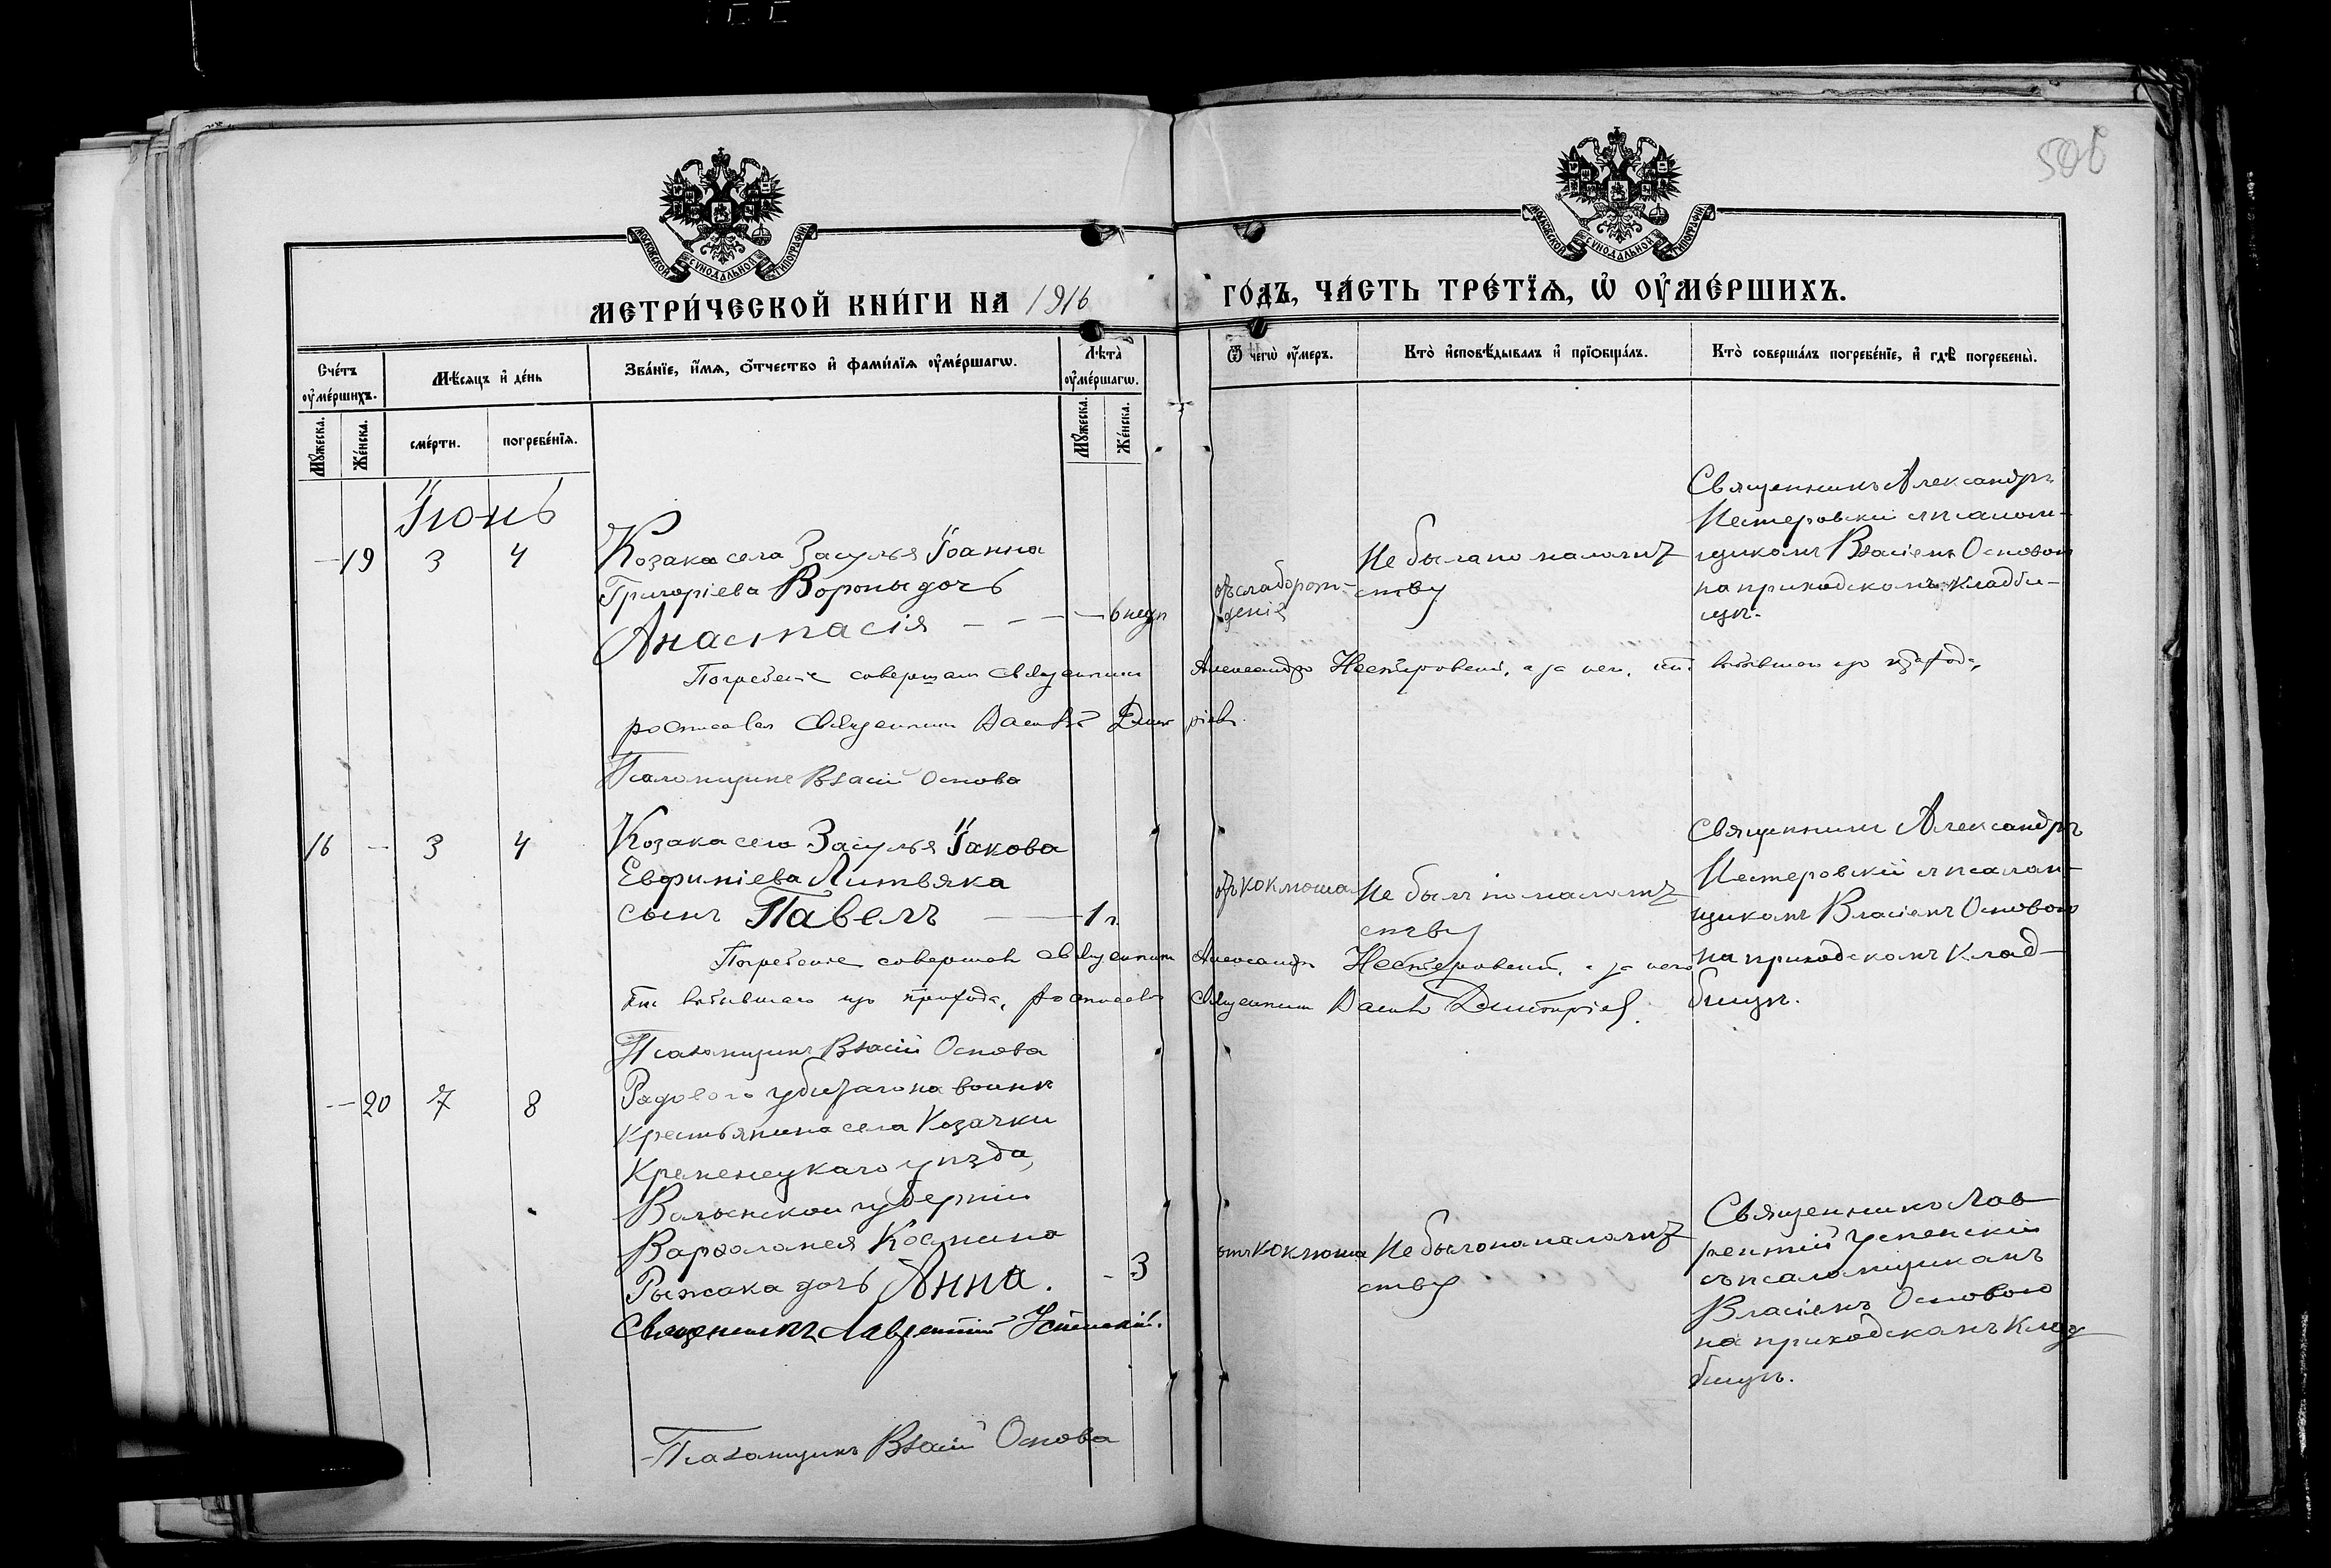 506
МОСКОВСКОЙ СУНОДАЛЬНОЙ ТИПОГРАФІИ
МОСКОВСКОЙ СУНОДАЛЬНОЙ ТИПОГРАФІИ
МЕТРИ́ЧЕСКОЙ КНИ́ГИ НА 1916
ГО́ДЪ, ЧА́СТЬ ТРЕ́ТЇѦ, Ѡ҆ ОУ҆МЕ́РШИХЪ.
Сче́тъ оу҆ме́ршихъ.
Мѣ́сяцъ и҆ де́нь
Зва́нїе, и҆́мѧ, ѻ҆́тчество и҆ фами́лїѧ оу҆ме́ршагѡ.
Лѣта̀ оу҆ме́ршагѡ.
Ѿ чегѡ̀ оу҆́меръ.
Кто̀ и҆сповѣ́дывалъ и҆ прїѻбща́лъ.
Кто̀ соверша́лъ погребе́нїе, и҆ гдѣ̀ погребены̀.
Мꙋ́жеска.
Же́нска.
сме́рти.
погребе́нїѧ.
Мꙋ́жеска.
Же́нска.
Іюнь
— 19 3 4
Козака села Засулья Іоанна
Григоріева Вороны дочь
Анастасія — — — — 6 недѣл
отъ слаборож-
денія
Не была по малолѣт
ству
Священникъ Александръ
Нестеровскій съ псалом-
щикомъ Власіемъ Основою
на приходскомъ кладби-
щѣ.
Погребеніе совершалъ священникъ Александръ Нестеровскій, а за него, какъ выбывшаго изъ прихода,
росписался Священникъ Дмитріевъ.
Псаломщикъ Власій Основа
16 — 3 4
Козака села Засулья Іакова
Евфиміева Литвяка
сынъ Павелъ — 1 г.
отъ коклюша
Не былъ по малолѣт
ству
Священникъ Александръ
Нестеровскій съ псалом-
щикомъ Власіемъ Основою
на приходскомъ клад-
бищѣ.
Погребеніе совершалъ священникъ Александръ Нестеровскій, а за него
выбывшаго изъ прихода, росписался Священникъ Дмитріевъ.
Псаломщикъ Власій Основа
— 20 7 8
Рядового убитаго на войнѣ
крестьянина села Козачки
Кременецкаго уѣзда,
Волынской губерніи
Варфоломея Косьмина
Рыжака дочь Анна. - 3
отъ коклюша
Не была по малолѣт
ству
Священникъ Лав
рентій Успенскій
съ псаломщикомъ
Власіемъ Основою
на приходскомъ клад
бищѣ.
Священникъ Лаврентій Успенскій.
Псаломщикъ Власій Основа